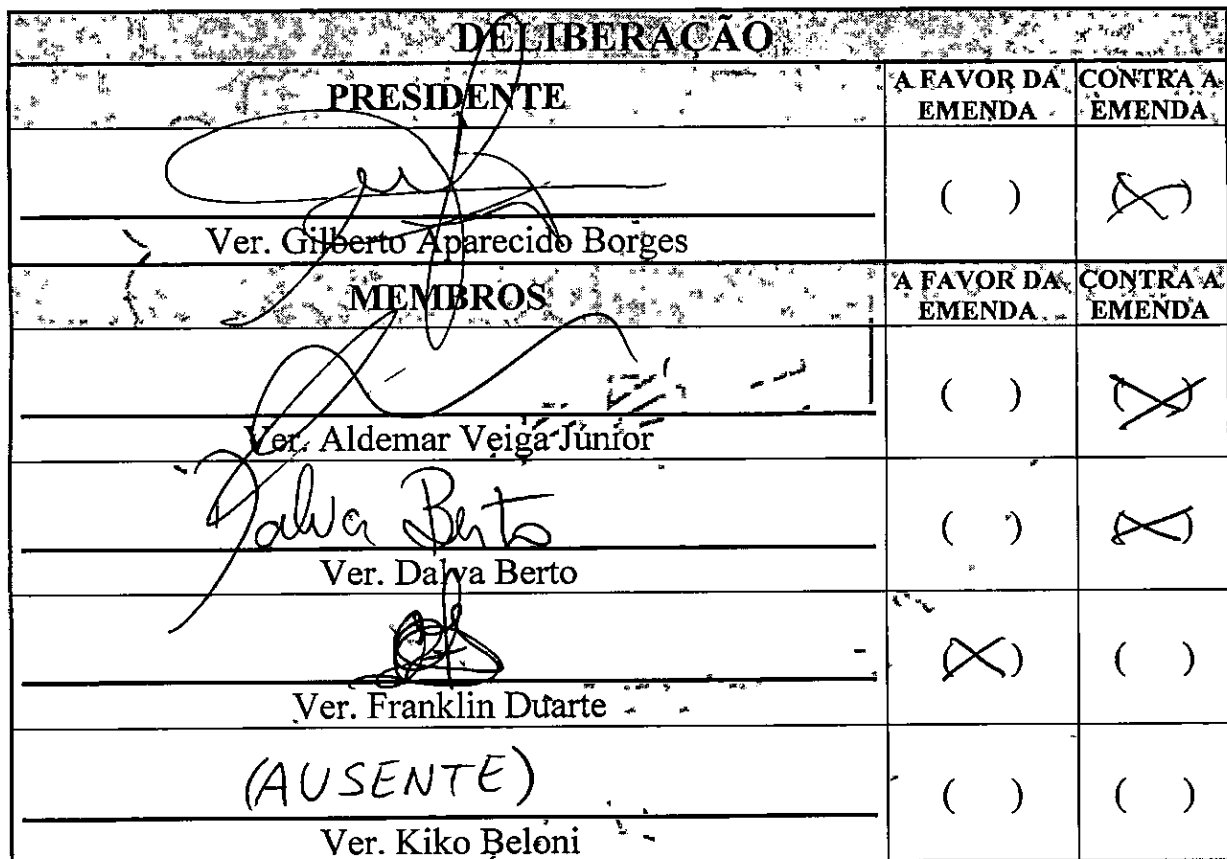 DELIBERAÇÃO
PRESIDENTE A FAVOR DA EMENDA CONTRA A EMENDA
( ) (X)
Ver. Gilberto Aparecido Borges
MEMBROS A FAVOR DA EMENDA CONTRA A EMENDA
( ) (X)
Ver. Aldemar Veiga Júnior
Dalva Berto ( ) (X)
Ver. Dalva Berto
(X) ( )
Ver. Franklin Duarte
(AUSENTE) ( ) ( )
Ver. Kiko Beloni